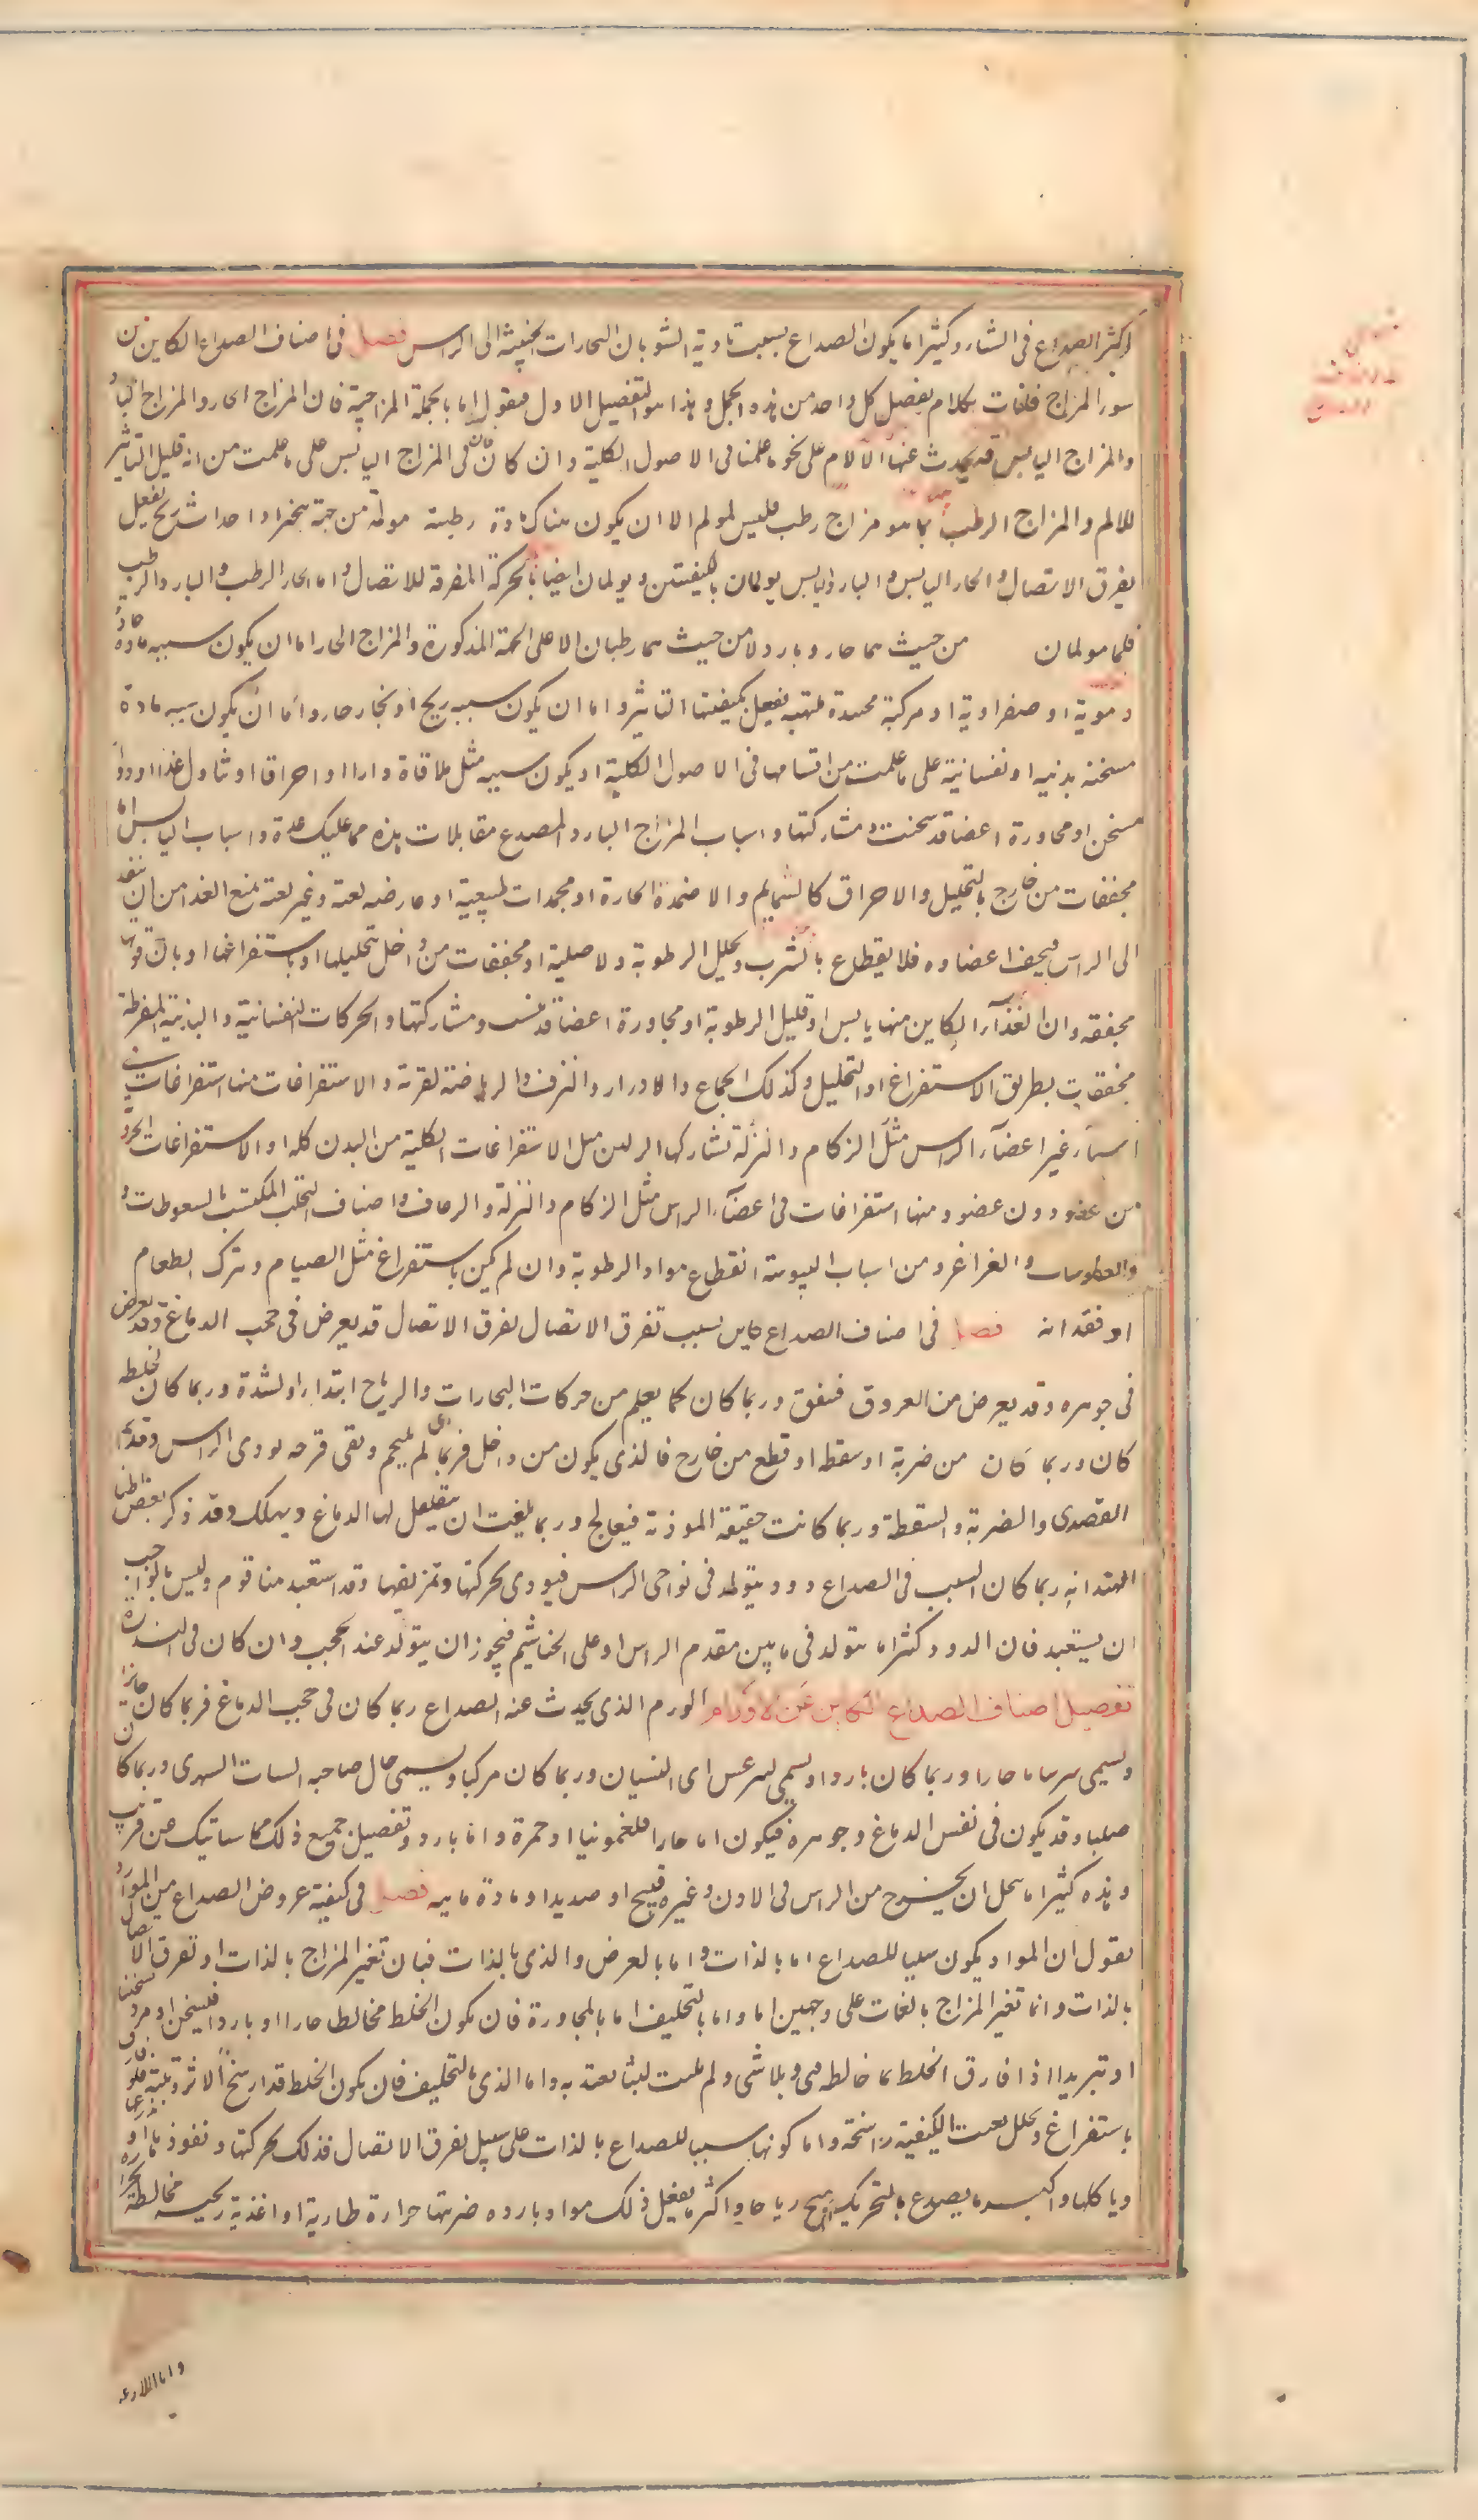 اكثر الصداع فى الشتاء وكثيرا ما يكون الصداع بسبب تادية الشوبان البخارات الخبيثة الى الراس فصل فى اصناف الصداع الكاين من
سوء المزاج فلنات بكلام يفصل كل واحد من هذه الجمل وهذا هو التفصيل الاول فيقول اما بالجملة المزاجية فان المزاج الحار والمزاج البارد
والمزاج اليابس قد يحدث عنها الآلام على نحو ما علمنا فى الاصول الكلية وان كان فى المزاج اليابس على ما علمت من انه قليل التاثير
للالم والمزاج الرطب بما هو مزاج رطب فليس لمولم الا ان يكون هناك مادة رطبة مولمة من جهة تبخر او احداث ريح يفعل
يفرق الاتصال والحار اليابس والبارد اليابس يولمان بالكيفيتين ويولمان ايضا بالحركة المفرقة للاتصال واما الحار الرطب والبارد الرطب
فلما مولمان من حيث هما حار وبارد ولا من حيث هما رطبان الا على الجهة المذكورة والمزاج الحار اما ان يكون سببه مادة حارة
دموية او صفراوية او مركبة محتدة ملتهبة يفعل بكيفيتها التاثير واما ان يكون سببه ريح او بخار حار واما ان يكون سببه مادة
مسخنة بدنية او نفسانية على ما علمت من اقسامها فى الاصول الكلية او يكون سببه مثل ملاقاة نار او احراق او تناول غذا او دوا
مسخن او مجاورة اعضا قد سخنت ومشاركتها واسباب المزاج البارد المصدع مقابلات هذه مما عليك عده واسباب اليابس اما
مجففات من خارج بالتحليل والاحراق كالشمايم والاضمدة الحارة او مجمدات طبيعية او عارضه لعتة وغير لعتة تمنع الغذا من ان ينفذ
الى الراس فيجف اعضاوه فلا يقطاع بالشرب وتحلل الرطوبة ولا صلية او مجففات من داخل تحليلها او باستفراغها او بان قوتها
مجففة وان الغذآء الكاين منها يابس او قليل الرطوبة او مجاورة اعضا قد يبست ومشاركتها والحركات النفسانية والبدنية المفرطة
مجففات بطريق الاستفراغ او التحليل وكذلك الجماع والادرار والنزف والرياضة لقربة والاستفراغات منها استفراغات
اسباء غير اعضآء الراس مثل الزكام والنزلة تشاركها الراس مثل الاستفراغات الكلية من البدن كله او الاستفراغات الجزئ
من عضو دون عضو ومنها استفراغات فى اعضآء الراس مثل الزكام والنزلة والرعاف واصناف التحلب المكتسب بالسعوطات و
والعطوسات والغراغر ومن اسباب اليبوسة انقطاع مواد الرطوبة وان لم يكن باستفراغ مثل الصيام وترك الطعام
او فقدانه فصل فى اصناف الصداع كاين بسبب تفرق الاتصال تفرق الاتصال قد يعرض فى حجب الدماغ وقد يعرض
فى جوهره وقد يعرض من العروق فتفتق وربما كان كما يعلم من حركات البخارات والرياح ابتداء او لشدة وربما كان لخلط
كان وربما كان من ضربة او سقطة او قطع من خارج فالذى يكون من داخل فربما لم يلتحم وبقى قرحه يودى الراس وقد
القصدى والضربة والسقطة وربما كانت خفيفة الموذية فيعالج وربما بلغت ان يتقلقل لها الدماغ ويهلك وقد ذكر بعض اطبا
الهند انه ربما كان السبب فى الصداع دود يتولد فى نواحى الراس فيوذى بحركتها وتمزيقها وقد استبعد منا قوم وليس بالواجب
ان يستبعد فان الدود كثيرا ما يتولد فى ما بين مقدم الراس او على الخناشيم فيجوز ان يتولد عند الحجب وان كان فى الندرة
تفصيل اصناف الصداع الكاين عن الاورام الورم الذى يحدث عنه الصداع ربما كان فى حجب الدماغ فربما كان حارا
ويسمى سرساما حارا وربما كان باردا ويسمى ليثرعس اى النسيان وربما كان مركبا ويسمى حال صاحبه السبات السهرى وربما كان
صلبا وقد يكون فى نفس الدماغ وجوهره فيكون اما حارا فلغمونيا او حمرة واما بارد وتفصيل جميع ذلك مما سياتيك عن قريب
وهذه كثيرا ما يحلل ان يخرج من الراس فى الاذن وغيره قيح او صديد او مادة مايية فصل فى كيفية عروض الصداع من المواد
يقول ان المواد يكون سببا للصداع اما بالذات واما بالعرض والذى بالذات فبان تغير المزاج بالذات او تفرق الاتصال
بالذات وانما تغير المزاج بالذات على وجهين اما واما بالتخليف اما بالمجاورة فان يكون الخلط مخالطا حارا او باردا فيسخن او يبرد سخنا
او تبريدا اذا فارق الخلط ما خالطه هى وتلاشى ولم يلبث لبثا يعتد به واما الذى بالتخليف فان يكون الخلط قد ارسخ الاثر وثبته فلو
باستفراغ وتحلل بقيت الكيفية راسخة واما كونها سببا للصداع بالذات على سبيل تفرق الاتصال فذلك بحركتها ونفوذها او
وياكلها واكثر ما يصدع بالتحريك ريح رياحا واكثر ما يفعل ذلك مواد باردة ضربتها حرارة طارية او اغذية ريحية مخالطة
واما اللاذعة